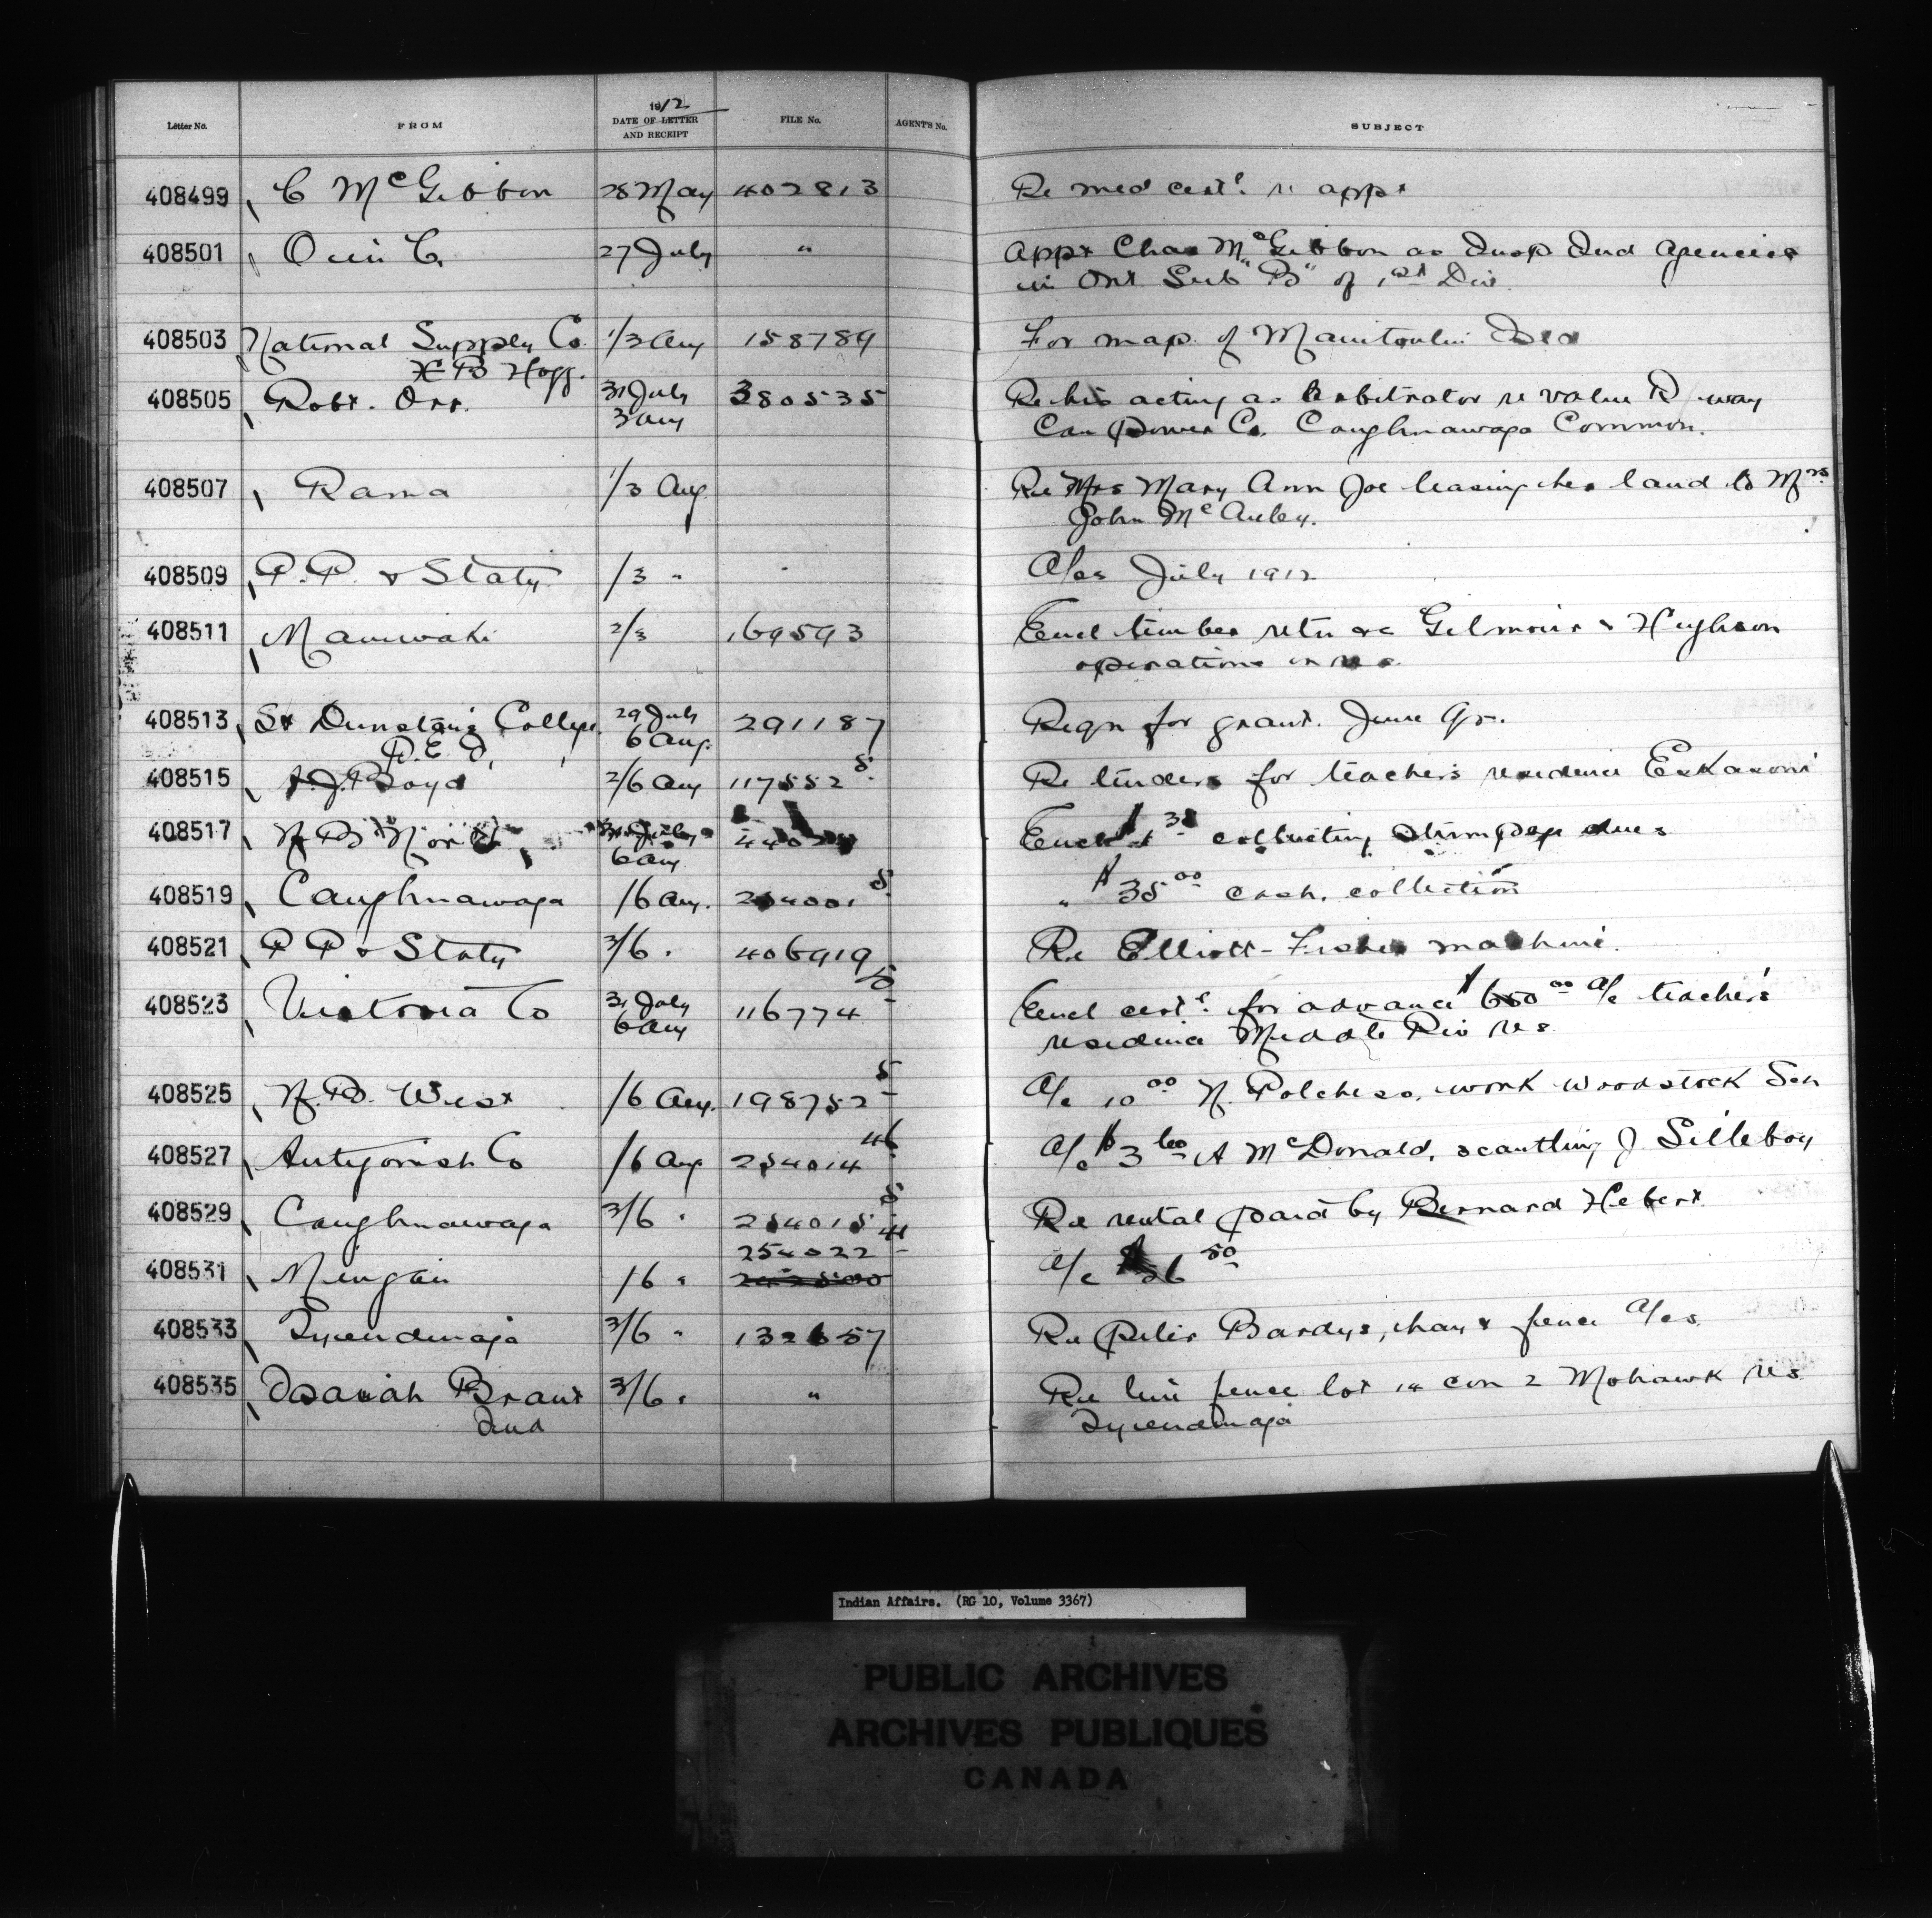 Letter No. FROM 1912 DATE OF LETTER AND RECEIPT FILE No. AGENT'S No. SUBJECT
408499 C McGibbon 28 May 402813 Re med certs. re appt
408501 O in C. 27 July " Appt Chas McGibbon as Insp Ind Agencies
in Ont Sub "B" of 1st Div.
408503 National Supply Co. 1/3 Aug 158784 For map of Manitoulin Isd
H B Hogg.
408505 Robt. Orr. 31 July 380535 Re his acting as Arbitrator re value R way
3 Aug Can Power Co. Caughnawaga Common.
408507 Rama 1/3 Aug Re Mrs Mary Ann Joe leasing her land to Mrs
John McAuley.
408509 P.P. & Staty. /3 " A/cs July 1912
408511 Maniwaki 2/3 169593 Encl timber retn re Gilmour & Hughson
operations on res.
408513 St Dunstan's College 29 July 291187 Reqn for grant. June qr.
P.E.I. 6 Aug.
408515 A.J. Boyd 2/6 Aug 117552 5 Re tenders for teacher's residence Eskasoni
408517 N B North 31 July Encl collecting stumpage dues
6 Aug
408519 Caughnawaga /6 Aug. 254001 5 " $35 00 cash, collection
408521 P P & Staty 3/6 " 406919 Re Elliott-Fisher machine.
408523 Victoria Co 31 July 116774 5 Encl certs. for advance $650 00 a/c teacher's
6 Aug residence Middle Riv res
408525 N.B. West /6 Aug. 198752 5 A/c 10 00 N. Polchess, work Woodstock Sch
408527 Antigonish Co /6 Aug 254014 46 A/c $3 60 A McDonald, scantling J. Silleboy
408529 Caughnawaga 3/6 " 254015 5 Re rental paid by Bernard Hebert
254022
408531 Mingan /6 " A/c 50
408533 Tyendinaga 3/6 " 132657 Re Peter Bardys, hay & fence A/cs.
408535 Isaiah Brant 3/6 " " Re line fence lot 14 con 2 Mohawk res.
Ind Tyendinaga
Indian Affairs. (RG 10, Volume 3367)
PUBLIC ARCHIVES
ARCHIVES PUBLIQUES
CANADA